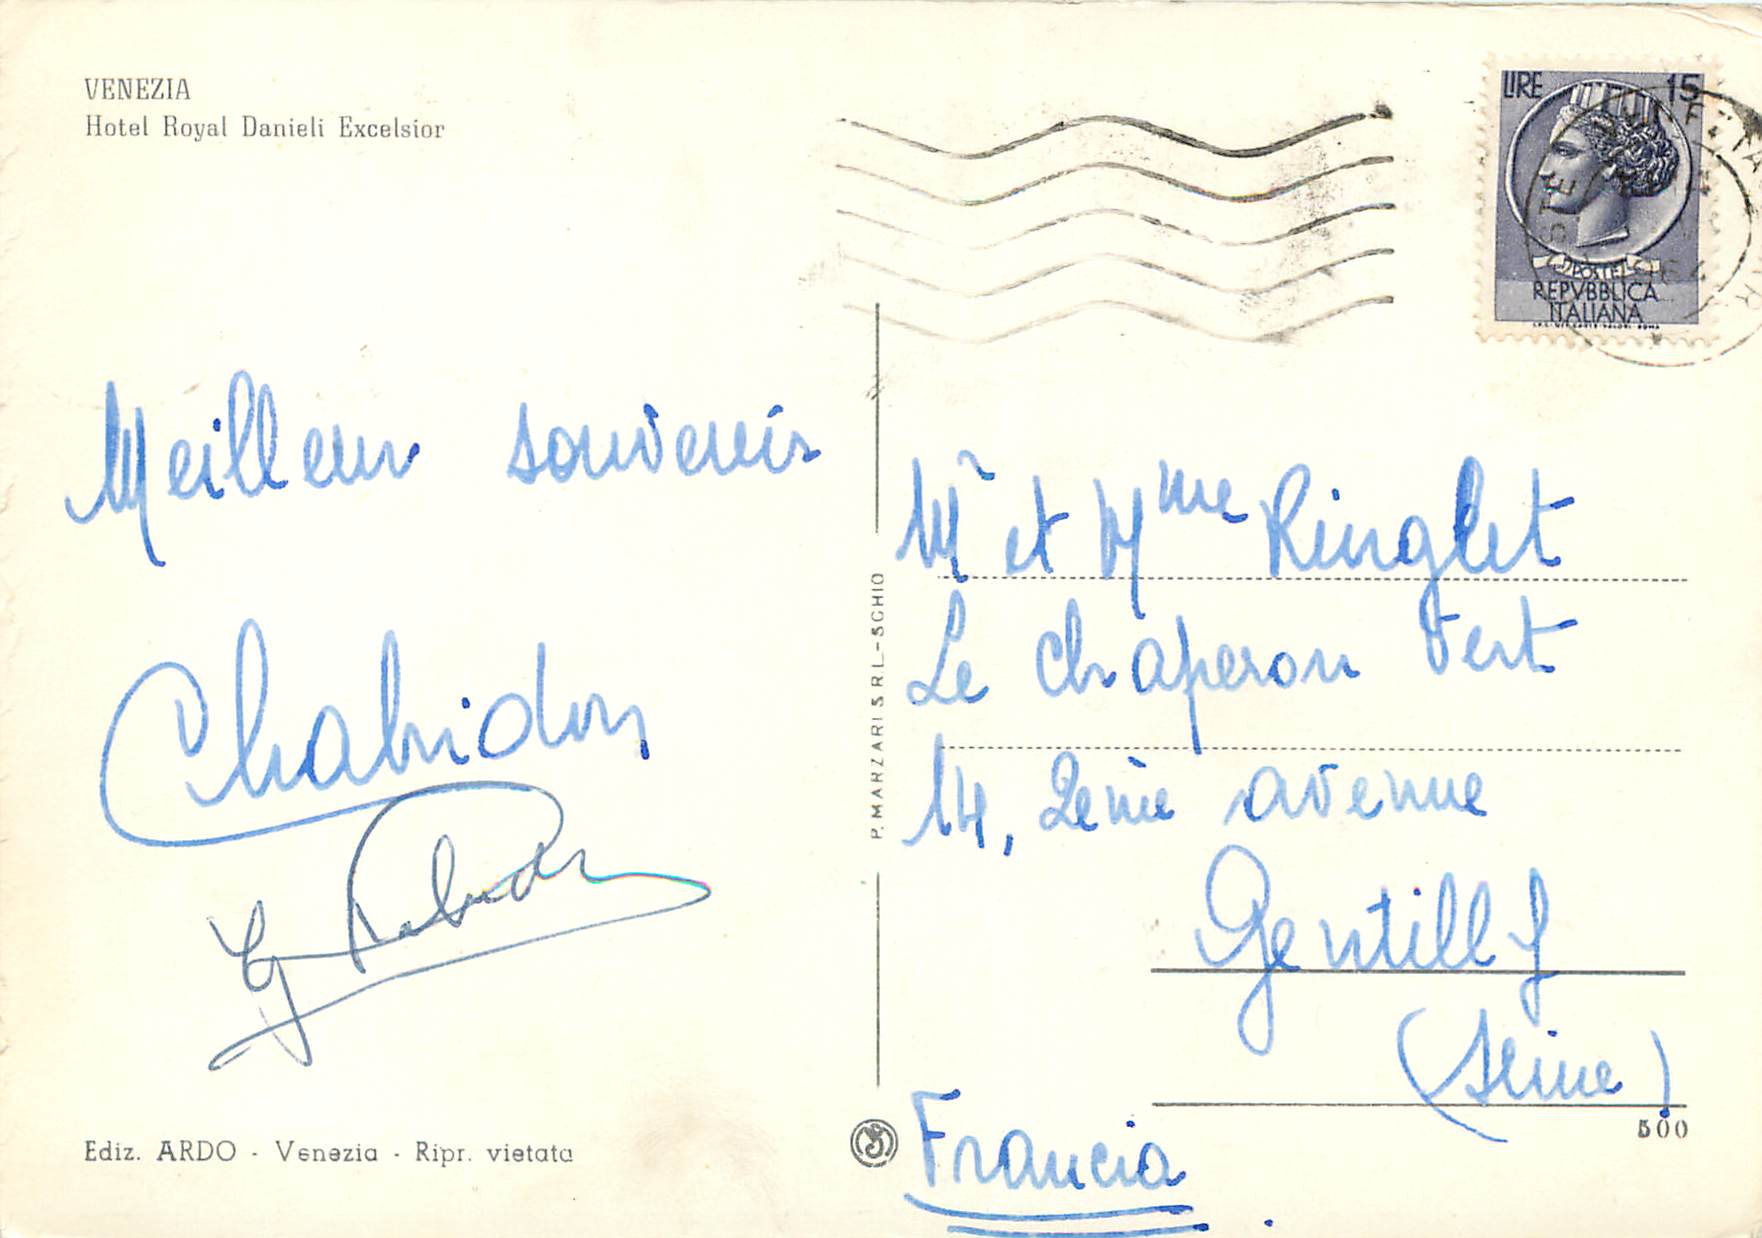 VENEZIA
Hotel Royal Danieli Excelsior
LIRE 15
POSTE
REPVBBLICA
ITALIANA
1964
Meilleur souvenir
Chabridon
Mr et Mme Ringlet
Le Chaperon Vert
14, 2ème avenue
Gentilly
(Seine)
Francia
P. MARZARI S.R.L. - SCHIO
Ediz. ARDO - Venezia - Ripr. vietata
500